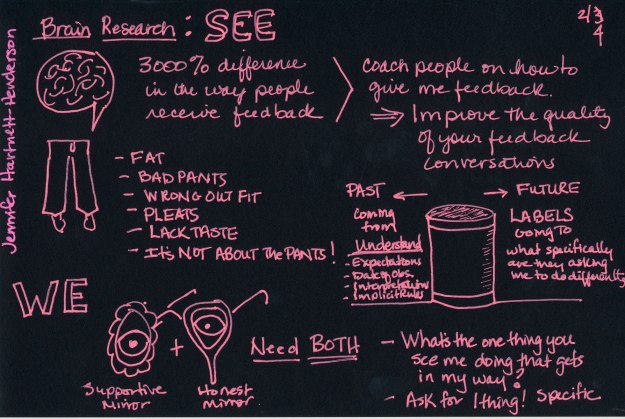 Jennifer Hartnett-Henderson
Brain Research: SEE
2/3
4
3000% difference
in the way people
receive feedback
coach people on how to
give me feedback.
⇒ Improve the quality
of your feedback
conversations
- FAT
- BAD PANTS
- WRONG OUTFIT
- PLEATS
- LACK TASTE
- IT'S NOT ABOUT THE PANTS!
PAST ←
Coming
from
Understand
- Expectations
- Data/obs.
- Interpretations
- Implicit Rules
→ FUTURE
LABELS
going to
what specifically
are they asking
me to do differently
WE
Supportive
Mirror
+
Honest
Mirror
Need BOTH
- What's the one thing you
see me doing that gets
in my way?
- Ask for 1 thing! Specific